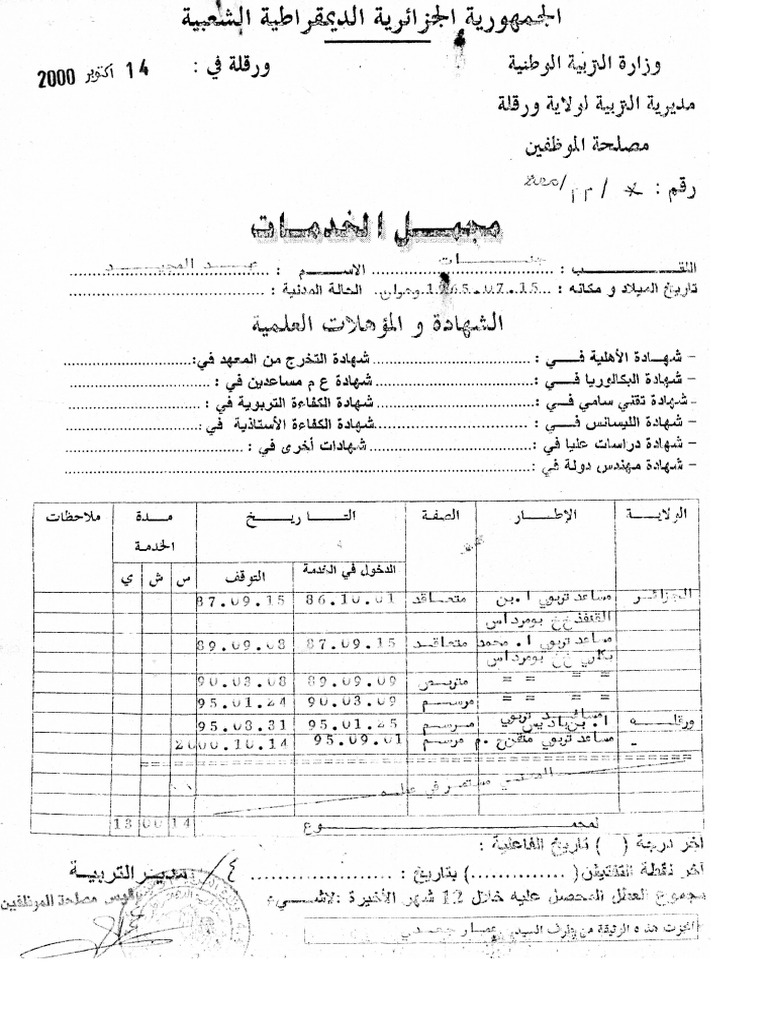 الجمهورية الجزائرية الديمقراطية الشعبية
وزارة التربية الوطنية ورقلة في : 14 أكتوبر 2000
مديرية التربية لولاية ورقلة
مصلحة الموظفين
رقم :
مجمل الخدمات
اللقب : الاسم : عبد المجيد
تاريخ الميلاد و مكانه : 1965.07.15 وهران الحالة المدنية :
الشهادة و المؤهلات العلمية
- شهادة الأهلية في : شهادة التخرج من المعهد في:
- شهادة البكالوريا في : شهادة ع م مساعدين في :
- شهادة تقني سامي في : شهادة الكفاءة التربوية في :
- شهادة الليسانس في : شهادة الكفاءة الأستاذية في :
- شهادة دراسات عليا في : شهادات أخرى في :
- شهادة مهندس دولة في :
الولاية الإطار الصفة التاريخ مدة الخدمة ملاحظات
الدخول في الخدمة التوقف س ش ي
الجزائر مساعد تربوي ا.بن متعاقد 86.10.01 87.09.15
بومرداس
مساعد تربوي ا.محمد متعاقد 87.09.15 89.09.08
بومرداس
= = = متربص 89.09.09 90.03.08
= = = مرسم 90.03.09 95.01.24
ورقلة مساعد تربوي ا.بن باديس مرسم 95.01.25 95.08.31
- مساعد تربوي م مرسم 95.09.01 2000.10.14
المعني مستمر في عمله
المجموع 14 00 13
آخر درجة ( ) تاريخ الفاعلية :
آخر نقطة التفتيش (..............) بتاريخ :
مجموع العطل المحصل عليه خلال 12 شهر الأخيرة : لاشيء
حررت هذه الوثيقة من طرف السيد
ع/ مدير التربية
رئيس مصلحة الموظفين